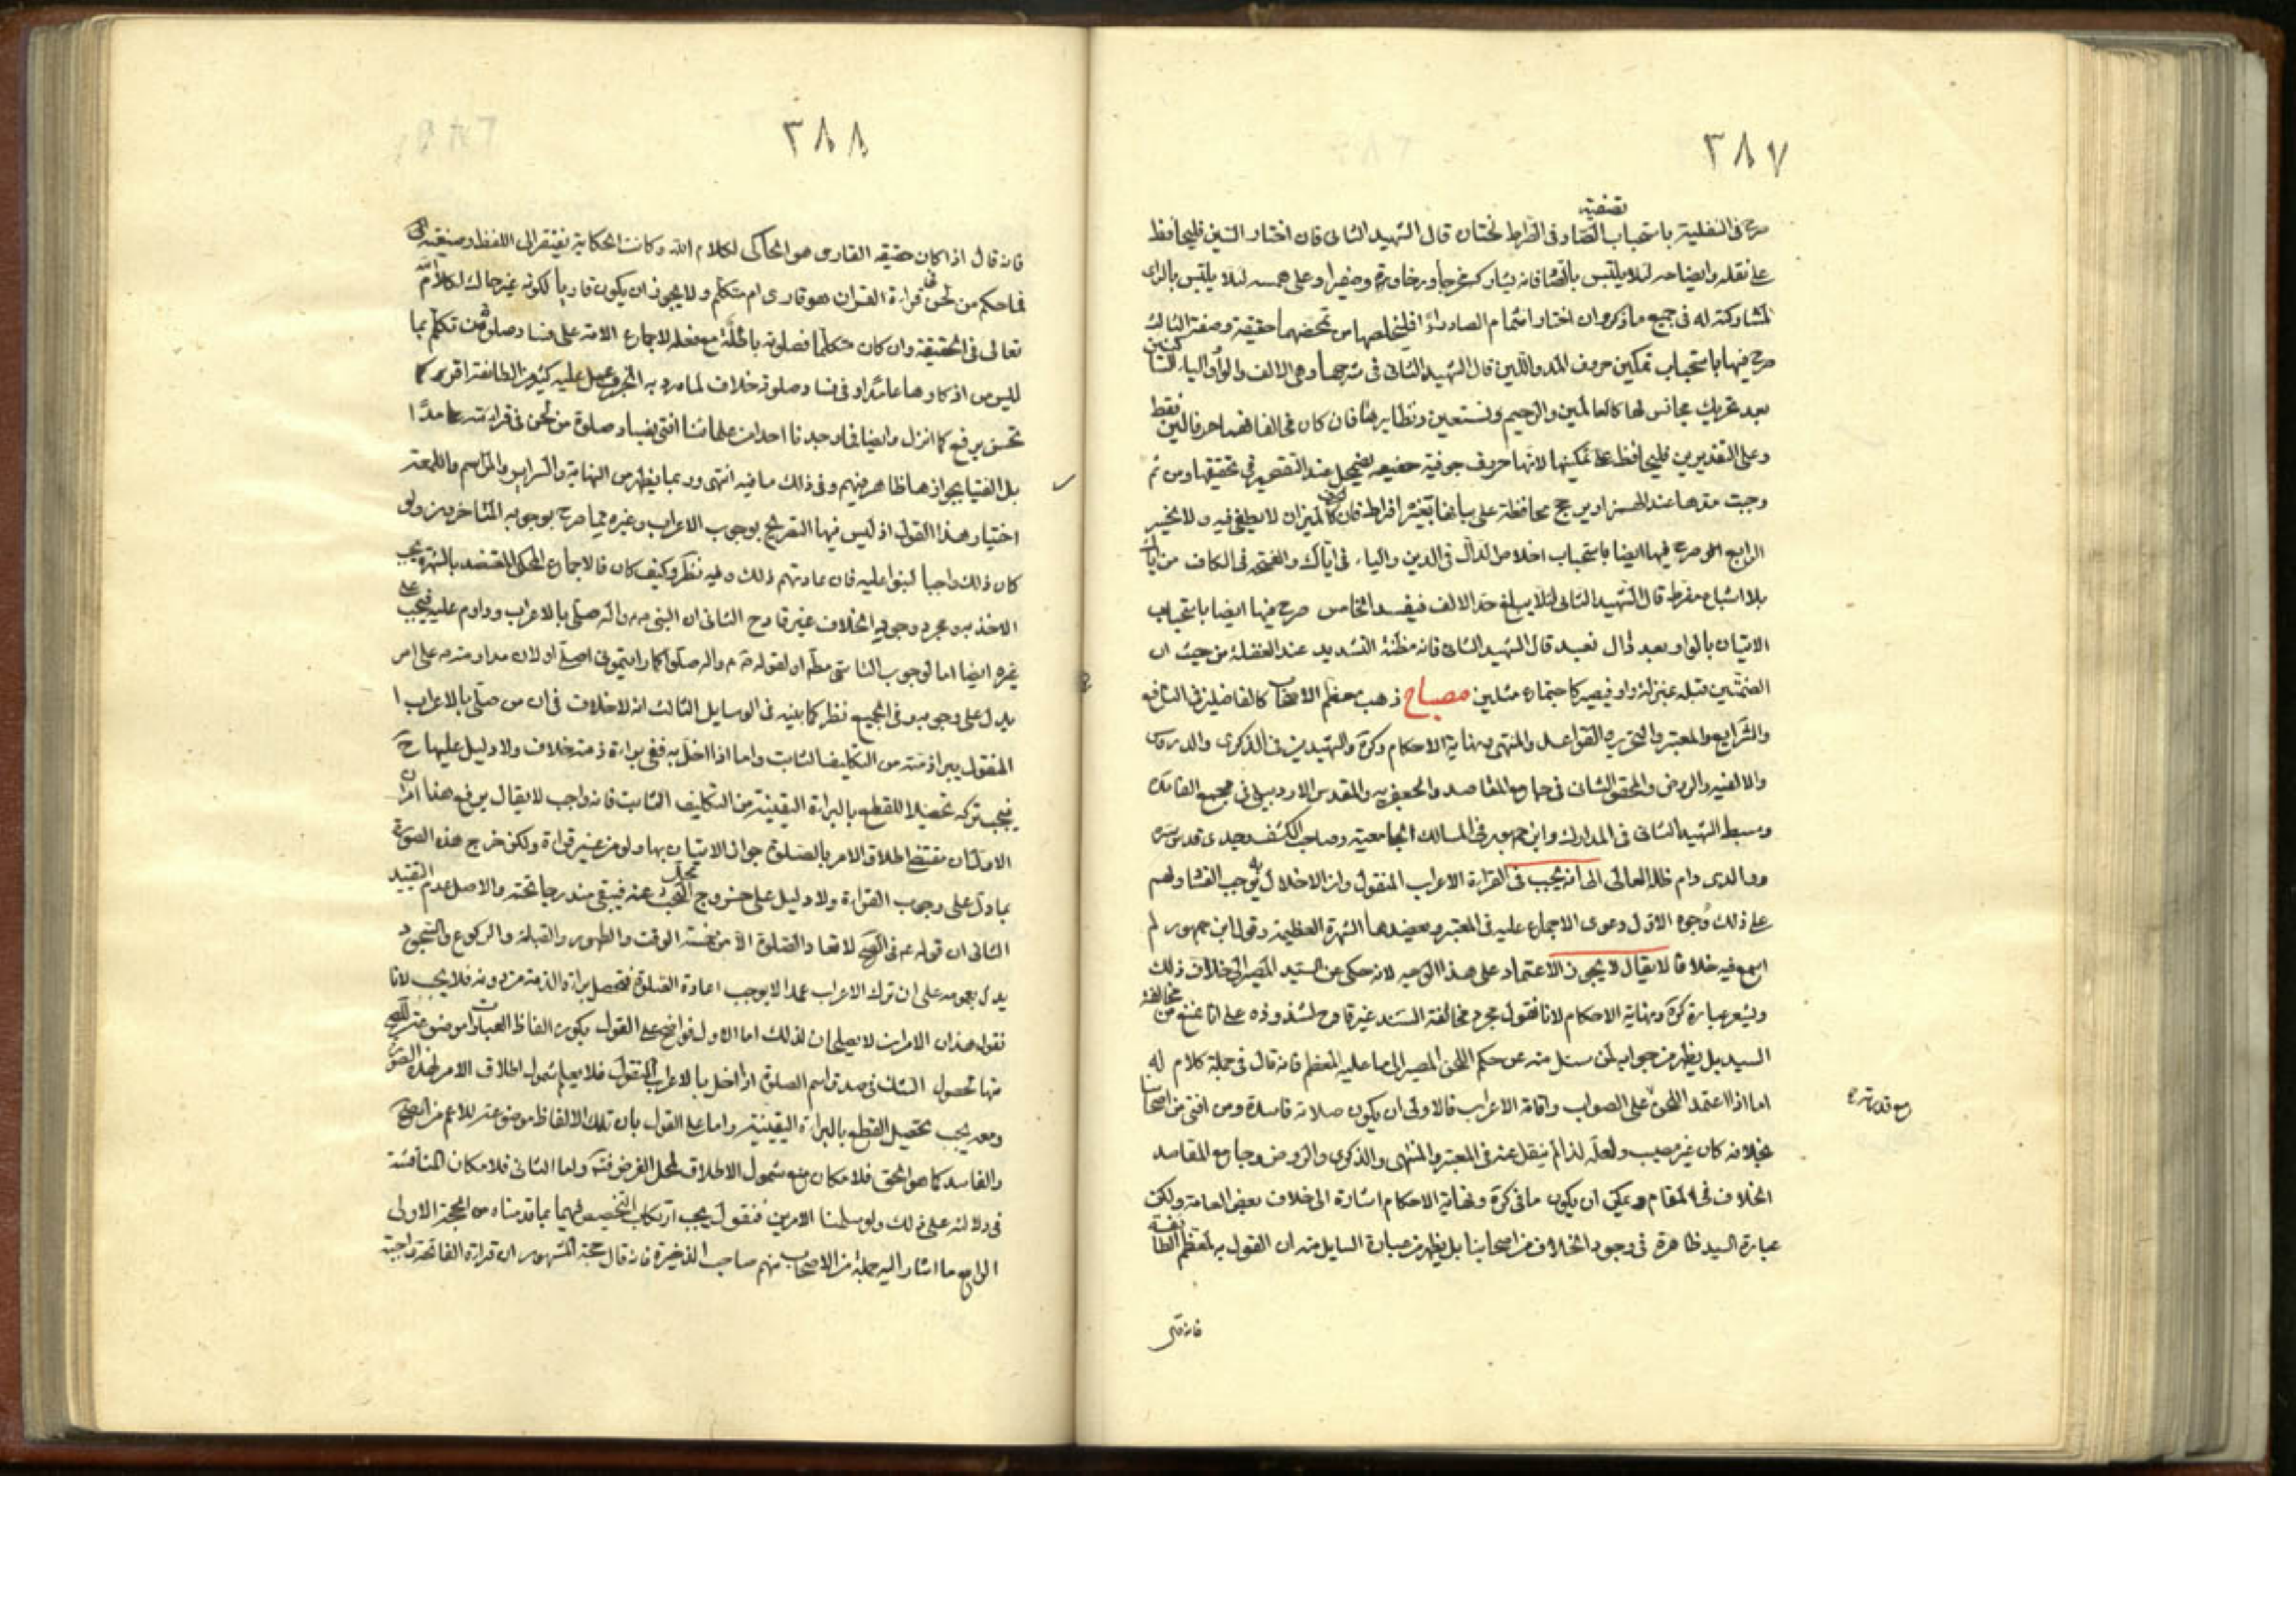 ٣٨٧
تصفية
صرح في النفلية باستحباب الصاد وفي الصراط نختان قال الشهيد الثاني فان اختار السين فليحافظ
على نقله وايضاحه لئلا يلتبس بالصاد فانه يشاركه مخرجا ورخاوة وصفيرا وعلى همسه لئلا يلتبس بالزاي
لمشاركته له في جميع ما ذكر وان اختار اشمام الصاد زاء فليخلصها من تمحضهما حقيقة وصفة الثالث
صرح فيها باستحباب تمكين حروف المد واللين قال الشهيد الثاني في شرحها وهي الالف والواو والياء الساكنتين
بعد تحريك مجانس لها كالعالمين والرحيم ونستعين ونظايرها فان كان في الفاظ احرف اللين فقط
وعلى التقديرين فليحافظ على تمكينها لانها حروف جوفية خفيفة يضمحل عند التقصير في تحقيقها ومن ثم
وجبت مدها عند الهمز او يرجح محافظة على بيانها بغير افراط فان الحرف كالميزان لا يطغى فيه ولا يخسر
الرابع صرح فيها ايضا باستحباب اخلاص الدال في الدين والياء في اياك والفتحة في الكاف من اياك
بلا اشباع مفرط قال الشهيد الثاني لئلا يبلغ حد الالف فيفسد الخامس صرح فيها ايضا باستحباب
الاتيان بالواو بعد دال نعبد قال الشهيد الثاني فانه مظنة التشديد عند الغفلة من حيث ان
الضمتين قبله بمنزلة واو فيصير كاجتماع مثلين مصباح ذهب معظم الاصحاب كالفاضلين في النافع
والشرايع والمعتبر والتحرير والقواعد والمنتهى ونهاية الاحكام وكرة والشهيدين في الذكرى والدروس
والالفيه والروض والمحقق الثاني في جامع المقاصد والجعفريه والمقدس الاردبيلي في مجمع الفائدة
وسبط الشهيد الثاني في المدارك وابن جمهور في المسالك الجامعية وصاحب الكشف وجدي قدس سره
ووالدي دام ظله العالى الى انه يجب في القراءة الاعراب المنقول وان الاخلال به يوجب الفساد ولهم
على ذلك وجوه الاول دعوى الاجماع عليه في المعتبر ويعضدها الشهرة العظيمة وقول ابن جمهور لم
اسمع فيه خلافا لا يقال لا يجوز الاعتماد على هذا الوجيه لانه حكى عن السيد المصير الى خلاف ذلك
ويشعر عبارة كرة ونهاية الاحكام لانا نقول مجرد مخالفة السيد غير قادح لشذوذه على انا نمنع من مخالفة
السيد بل يظهر من جوابه لمن سئل منه عن حكم اللحن المصير الى ما عليه المعظم فانه قال في جملة كلام له
اما اذا اعتمد اللحن على الصواب واقامة الاعراب فالاولى ان يكون صلاته فاسدة ومن افتى من اصحابنا
بخلافه كان غير مصيب ولعله لذا لم ينقل عنه في المعتبر والمنتهى والذكرى والروض وجامع المقاصد
الخلاف في المقام ويمكن ان يكون ما في كرة ونهاية الاحكام اشارة الى خلاف بعض العامة ولكن
عبارة السيد ظاهرة في وجود الخلاف من اصحابنا بل يظهر من عبارة السايل منه ان القول به لمعظم الطائفة
٣٨٨
فانه قال اذا كان حقيقه القارى هو الحاكى لكلام الله وكانت الحكاية يفتقر الى اللفظ وصيغته
فما حكم من لحن في قراءة القران هو قارى ام متكلم ولا يجوز ان يكون قاريا لكونه غير حاك لكلام الله
تعالى في الحقيقة وان كان متكلما فصلوته باطلة مع فعله لاجماع الامة على فساد صلوة من تكلم بما
ليس من اذكارها عامدا وفي فساد صلوته خلاف لما ورد به الخبر وعمل عليه كثير من الطائفة اقره كما
تحسن يرفع كما انزل وايضا فما وجدنا احدا من علمائنا افتى بفساد صلوة من لحن في قراءته عامدا
بل الفتيا بجواز هذا ظاهر منهم وفي ذلك ما فيه انتهى وربما يظهر من النهاية والسراير والمراسم واللمعة
اختيار هذا القول اذ ليس فيها التصريح بوجوب الاعراب وغيره مما صرح بوجوبه المتاخرون ولو
كان ذلك واجبا لنبهوا عليه فان عادتهم ذلك وفيه نظر وكيف كان فالاجماع المحكي المعتضد بالشهرة يجب
الاخذ به ومجرد وجود الخلاف غير قادح الثاني ان النبي ص واله صلى بالاعراب وداوم عليه فيجب على
غيره ايضا اما لوجوب التاسي مطلقا او لقوله ص واله صلوا كما رايتموني اصلى او لان مداومته على امر
يدل على وجوبه وفي الجميع نظر كما بينه في الوسايل الثالث انه لا خلاف في ان من صلى بالاعراب
المنقول يبراء ذمته من التكليف الثابت واما اذا اخل به ففي براءة ذمته خلاف ولا دليل عليها ح
فيجب تركه تحصيلا للقطع بالبراءة اليقينية من التكليف الثابت فانه واجب لا يقال يرفع هذا امران
الاول ان مقتضى اطلاق الامر بالصلوة جواز الاتيان بها ولو من غير قراءة ولكن خرج هذه الصورة
بما دل على وجوب القراءة ولا دليل على خروج محل البحث عنه فيبقى مندرجا تحته والاصل عدم التقييد
الثاني ان قوله ع في الصحيح لا تعاد الصلوة الا من خمسة الوقت والطهور والقبلة والركوع والسجود
يدل بعمومه على ان ترك الاعراب عمدا لا يوجب اعادة الصلوة فتحصل براءة الذمة من دونه فلا يجب لانا
نقول هذان الامران لا يصلحان لذلك اما الاول فواضح على القول بكون الفاظ العبادات موضوعة للصحيح
منها لحصول الشك في صدق اسم الصلوة اذا اخل بالاعراب المنقول فلا يعلم شمول اطلاق الامر لهذه الصورة
ومعه يجب تحصيل القطع بالبراءة اليقينية واما على القول بان تلك الالفاظ موضوعة للاعم من الصحيح
والفاسد كما هو الحق فلامكان منع شمول الاطلاق لمحل الفرض فتدبر واما الثاني فلامكان المناقشة
في دلالته على ذلك ولو سلمنا الامرين فنقول يجب ارتكاب التخصيص فيهما بما قدمناه من الحجة الاولى
الرابع ما اشار اليه جملة من الاصحاب منهم صاحب الذخيرة فانه قال حجة المشهور ان قراءة الفاتحة واجبة